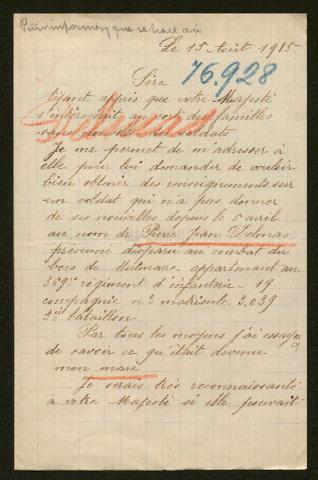 Le 15 Août 1915
76.928
Sire
ayant appris que votre Majesté
s'intéressait au sort des familles
sans nouvelles des soldats
Je me permet de m'adresser à
elle pour lui demander de vouloir
bien obtenir des renseignements sur
un soldat qui n'a pas donner
de ses nouvelles depuis le 5 avril
au nom de Pierre Jean
présumé disparu au combat du
bois de appartenant au
d'infanterie 19
compagnie n° matricule 3.039
5me bataillon
Par tous les moyens j'ai essayer
de savoir ce qu'était devenu
mon mari
Je serais très reconnaissante
à votre Majesté si elle pouvait